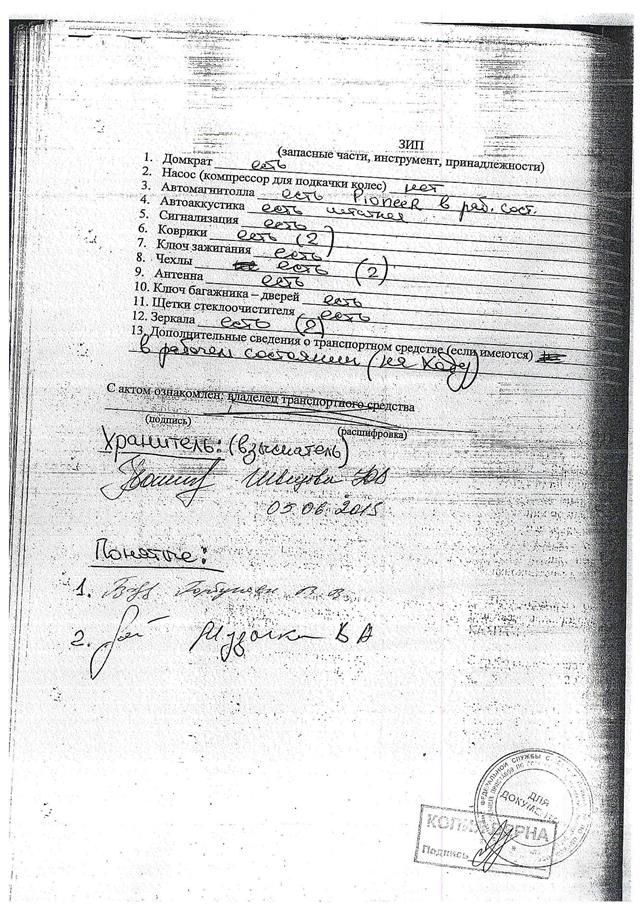 ЗИП
(запасные части, инструмент, принадлежности)
1. Домкрат есть
2. Насос (компрессор для подкачки колес) нет
3. Автомагнитолла есть Pioneer в раб. сост.
4. Автоаккустика есть штатная
5. Сигнализация есть
6. Коврики есть (2)
7. Ключ зажигания есть
8. Чехлы есть (2)
9. Антенна есть
10. Ключ багажника – дверей есть
11. Щетки стеклоочистителя есть
12. Зеркала есть (2)
13. Дополнительные сведения о транспортном средстве (если имеются)
в рабочем состоянии (на ходу)
С актом ознакомлен: владелец транспортного средства
(подпись)
(расшифровка)
Хранитель: (взыскатель)
Швецова
05.06.2015
Понятые:
1. В. В.
2. В А
ФЕДЕРАЛЬНОЙ СЛУЖБЫ
ДЛЯ
КОПИЯ ВЕРНА
Подпись